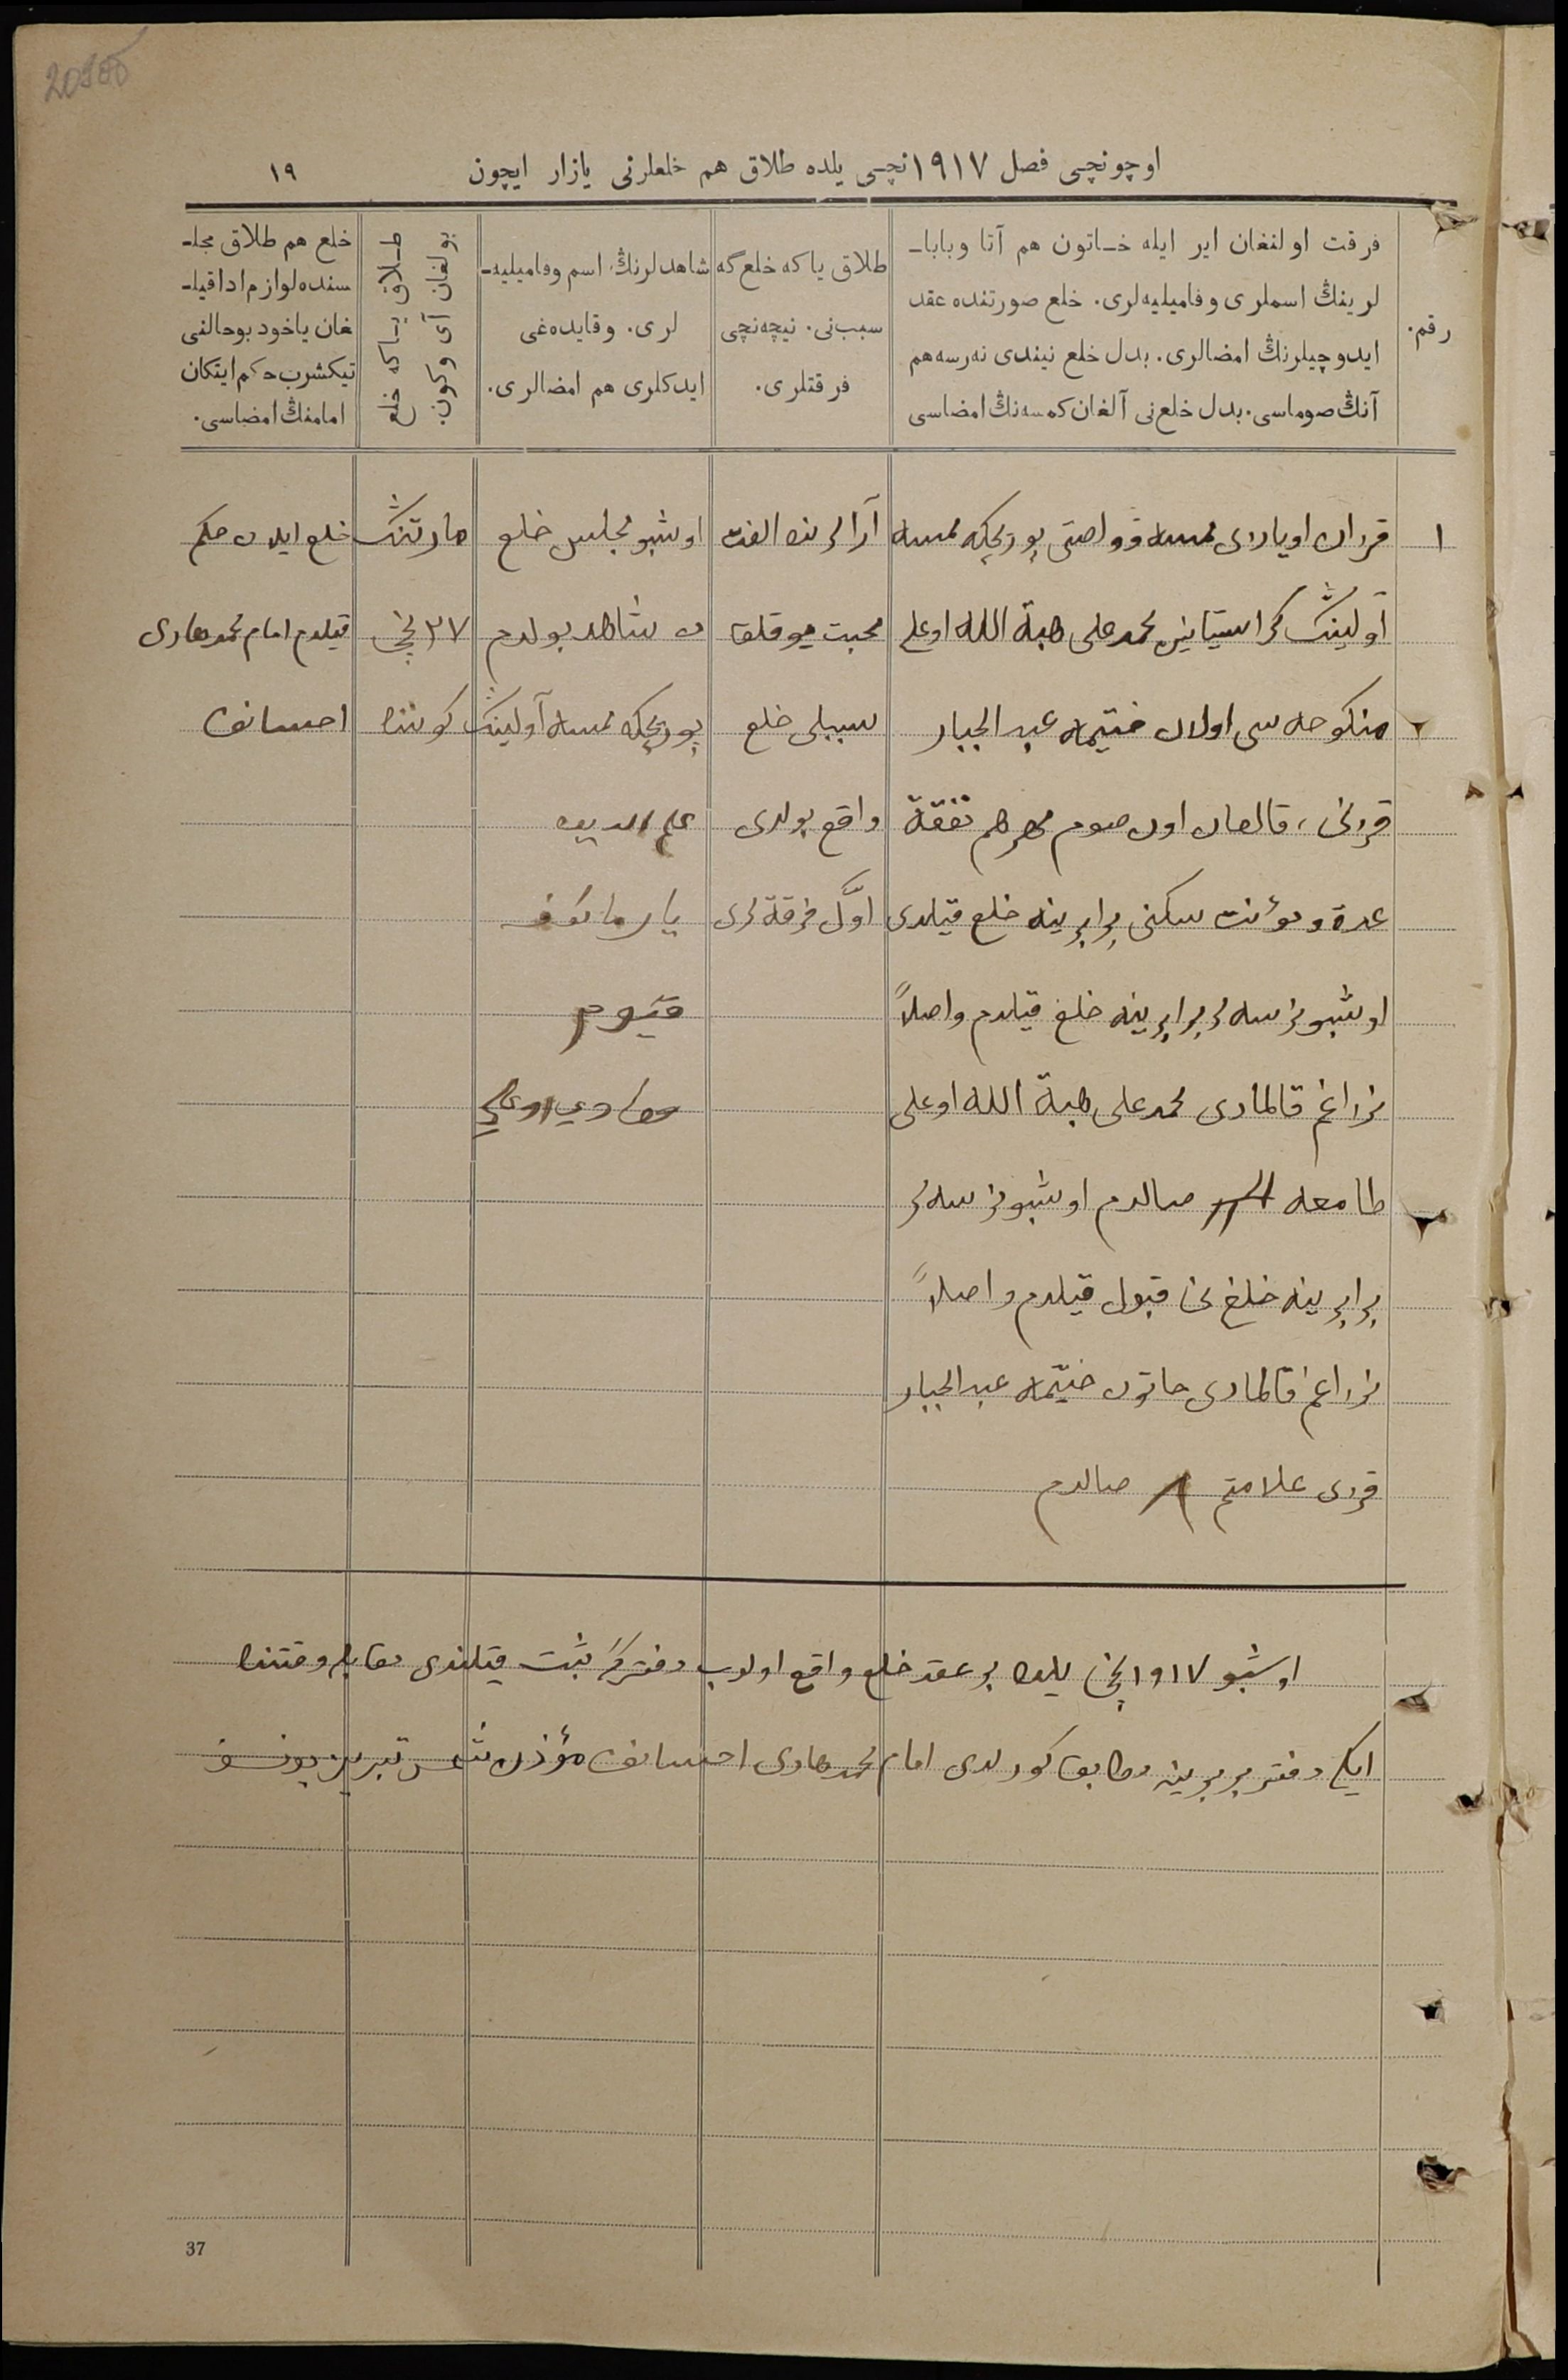 اوچونچی فصل ١٩١٧ نچی یلده طلاق هم خلعلرنی یازار ایچون
١٩
رقم.
فرقت اولنغان ایر ایله خـاتون هم آتا وبابا-
لرینڭ اسملری وفامیلیه‌لری. خلع صورتنده عقد
ایدوچیلرنڭ امضالری. بدل خلع نیندی نه‌رسه هم
آنڭ صوماسی. بدل خلع‌نی آلغان کمسه‌نڭ امضاسی
طلاق یاکه خلع گه
سبب‌نی. نیچه‌نچی
فرقتلری.
شاهدلرنڭ اسم وفامیلیه-
لری. وقایده‌غی
ایدکلری هم امضالری.
طـلاق یـاکه خلع
بولغان آی وکون.
خلع هم طلاق مجلـ
سنده لوازم اداقیلـ
غان یاخود بوحالنی
تیکشرب حکم ایتکان
امامنڭ امضاسی.
١
قزان اویازی
آولینڭ کراستیانین محمدعلی هبة الله اوغلی
منکوحه سی اولان ختیمه عبد الجبار
قزینی، قالغان اون صوم مهر هم نفقۀ
عدة و مؤنت سکنی برابرینه خلع قیلدی
اوشبو نرسه لر برابرینه خلع قیلدم واصلاً
نزاغم قالمادی محمدعلی هبة الله اوغلی
طامغه صالدم اوشبو نرسه لر
برابرینه خلع نی قبول قیلدم واصلاً
نزاعم قالمادی خاتون ختیمه عبدالجبار
قزی علامتم صالدم
آرالرنده الفت
محبت یوقلق
سببلی خلع
واقع بولدی
اوّل فرقة لری
اوشبو مجلس خلع
ده شاهد بولدم
بوریچکه نمسه آولینڭ
علم الدین
یارمانوف
قیوم
اوغلی
مارتنڭ
٢٧ نچی
کوننده
خلع ایلان حکم
قیلدم امام محمدهادی
احسانوف
اوشبو ١٩١٧ نچی یلده بر عقد خلع واقع اولوب دفترگه ثبت قیلندی مقابله وقتنده
ایکی دفتر بربرینه مطابق کورلدی امام محمدهادی احسانوف مؤذن شمس تبریز یونسف
37